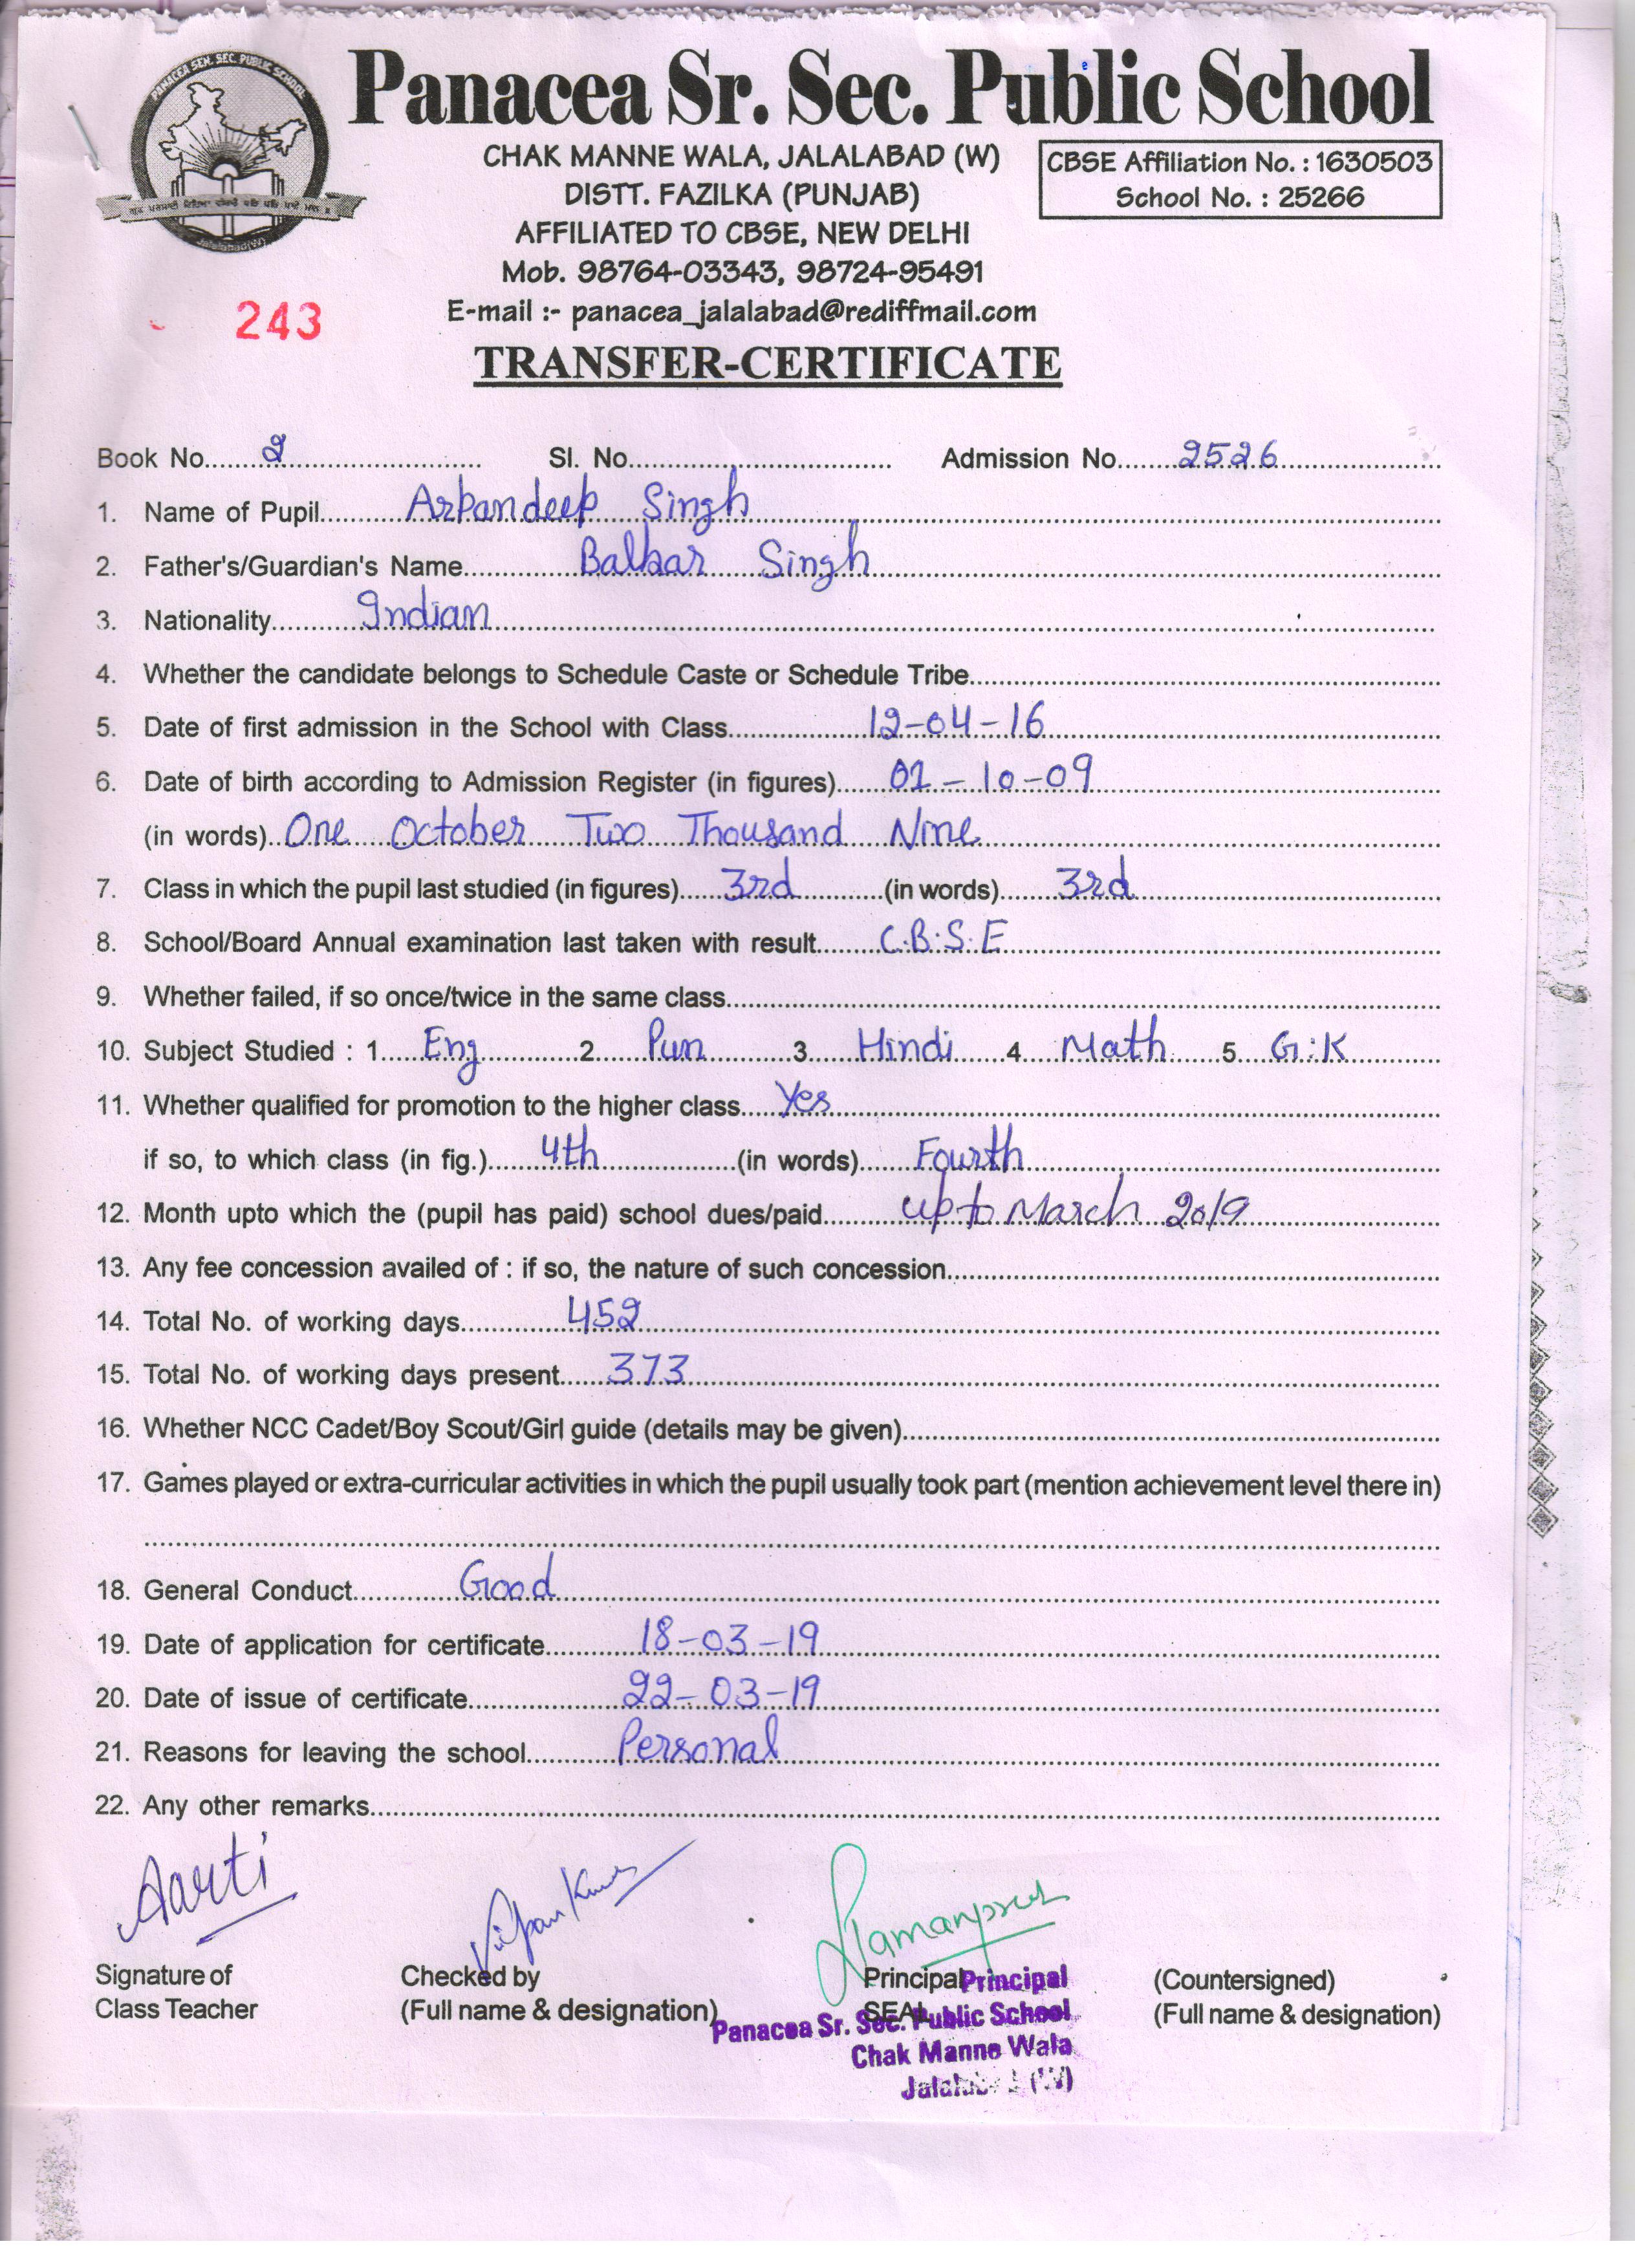 PANACEA SEN. SEC. PUBLIC SCHOOL
Jalalabad(W)
Panacea Sr. Sec. Public School
CHAK MANNE WALA, JALALABAD (W)
DISTT. FAZILKA (PUNJAB)
AFFILIATED TO CBSE, NEW DELHI
Mob. 98764-03343, 98724-95491
E-mail :- panacea_jalalabad@rediffmail.com
CBSE Affiliation No. : 1630503
School No. : 25266
243
TRANSFER-CERTIFICATE
Book No. 2 Sl. No. Admission No. 2526
1. Name of Pupil Arpandeep Singh
2. Father's/Guardian's Name Balkar Singh
3. Nationality Indian
4. Whether the candidate belongs to Schedule Caste or Schedule Tribe
5. Date of first admission in the School with Class 12-04-16
6. Date of birth according to Admission Register (in figures) 01-10-09
(in words) One October Two Thousand Nine
7. Class in which the pupil last studied (in figures) 3rd (in words) 3rd
8. School/Board Annual examination last taken with result C.B.S.E
9. Whether failed, if so once/twice in the same class
10. Subject Studied : 1 Eng 2 Pun 3 Hindi 4 Math 5 G.K
11. Whether qualified for promotion to the higher class Yes
if so, to which class (in fig.) 4th (in words) Fourth
12. Month upto which the (pupil has paid) school dues/paid up to March 2019
13. Any fee concession availed of : if so, the nature of such concession
14. Total No. of working days 452
15. Total No. of working days present 373
16. Whether NCC Cadet/Boy Scout/Girl guide (details may be given)
17. Games played or extra-curricular activities in which the pupil usually took part (mention achievement level there in)
18. General Conduct Good
19. Date of application for certificate 18-03-19
20. Date of issue of certificate 22-03-19
21. Reasons for leaving the school Personal
22. Any other remarks
Aarti Vipan Kumar Ramanpreet
Signature of Class Teacher
Checked by (Full name & designation)
Principal SEAL
(Countersigned) (Full name & designation)
Principal
Panacea Sr. Sec. Public School
Chak Manne Wala
Jalalabad (W)